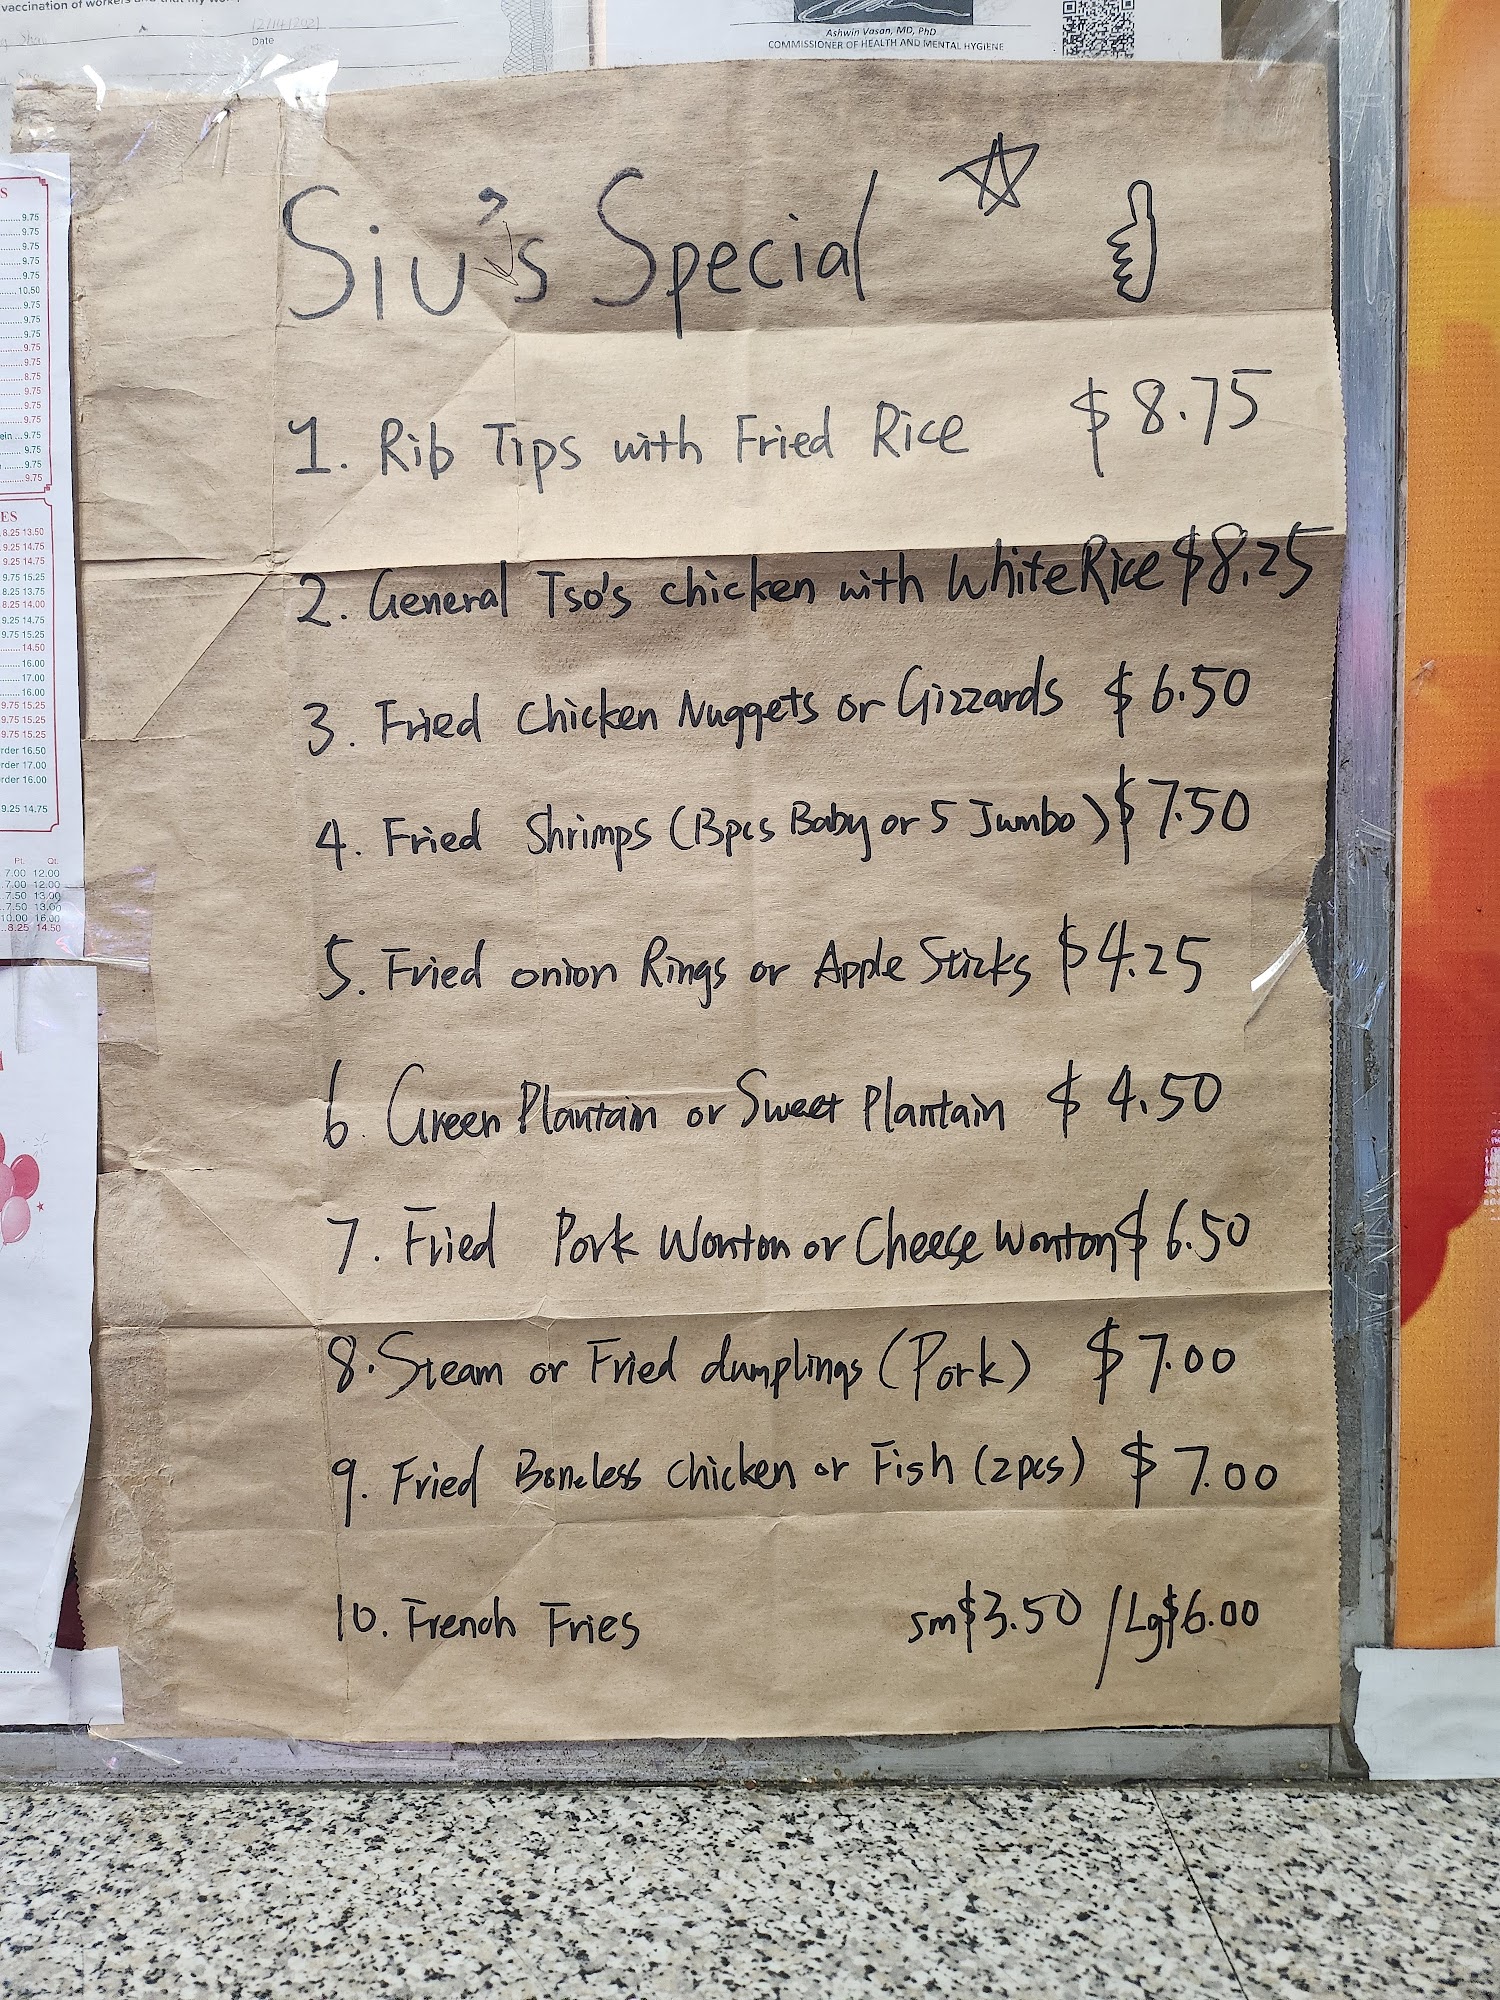 vaccination of workers and that my
12/14/2021
Date
Ashwin Vasan, MD, PhD
COMMISSIONER OF HEALTH AND MENTAL HYGIENE
Siu's Special
1. Rib Tips with Fried Rice $8.75
2. General Tso's chicken with White Rice $8.25
3. Fried Chicken Nuggets or Gizzards $6.50
4. Fried Shrimps (13pcs Baby or 5 Jumbo) $7.50
5. Fried onion Rings or Apple Sticks $4.25
6. Green Plantain or Sweet Plantain $4.50
7. Fried Pork Wonton or Cheese Wonton $6.50
8. Steam or Fried dumplings (Pork) $7.00
9. Fried Boneless chicken or Fish (2pcs) $7.00
10. French Fries sm$3.50 / Lg$6.00
S
9.75
9.75
9.75
9.75
9.75
10.50
9.75
9.75
9.75
9.75
9.75
8.75
9.75
9.75
9.75
ein 9.75
9.75
9.75
9.75
ES
8.25 13.50
9.25 14.75
9.25 14.75
9.75 15.25
8.25 13.75
8.25 14.00
9.25 14.75
9.75 15.25
14.50
16.00
17.00
16.00
9.75 15.25
9.75 15.25
9.75 15.25
rder 16.50
rder 17.00
rder 16.00
9.25 14.75
Pt. Qt.
7.00 12.00
7.00 12.00
7.50 13.00
7.50 13.00
10.00 16.00
8.25 14.50